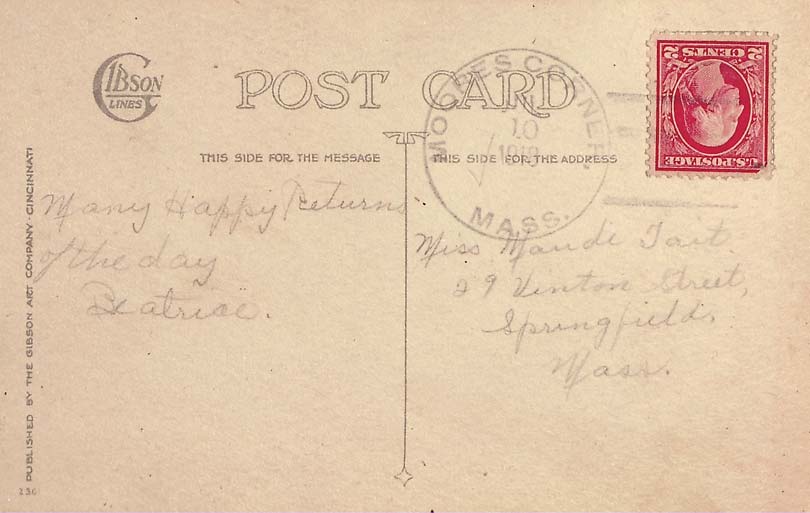 GIBSON
LINES
POST CARD
THIS SIDE FOR THE MESSAGE
THIS SIDE FOR THE ADDRESS
MOORES CORNER.
10
1918
MASS.
2 CENTS 2
U.S. POSTAGE
Many Happy Returns
of the day
Beatrice.
Miss Maude Tait
29 Vinton Street,
Springfield,
Mass.
PUBLISHED BY THE GIBSON ART COMPANY · CINCINNATI
236